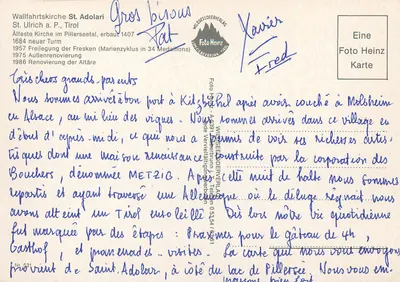 Wallfahrtskirche St. Adolari
St. Ulrich a. P., Tirol
Älteste Kirche im Pillerseetal, erbaut 1407
1684 neuer Turm
1957 Freilegung der Fresken (Marienzyklus in 34 Medaillons)
1975 Außenrenovierung
1986 Renovierung der Altäre
Gros bisous
Pat
Foto Heinz
Xavier
Fred
Eine
Foto Heinz
Karte
Très chers grands-parents
Nous sommes arrivés à bon port à après avoir couché à Molsheim
en Alsace, au milieu des vignes. Nous sommes arrivés dans ce village en
début d'après-midi, ce qui nous a permis de voir ses richesses artis-
tiques dont une maison renaissance construite par la corporation des
Bouchers, dénommée METZIG. Après cette nuit de halte nous sommes
repartis et ayant traversé une Allemagne où le déluge régnait nous
avons atteint un Tirol ensoleillé. Dès lors notre vie quotidienne
fut marquée par des étapes : pour le gâteau de 4h,
Gasthof, et promenades-visites. La carte que nous vous envoyons
provient de Saint Adolari, à côté du lac de Pillersee. Nous vous em-
brassons bien fort